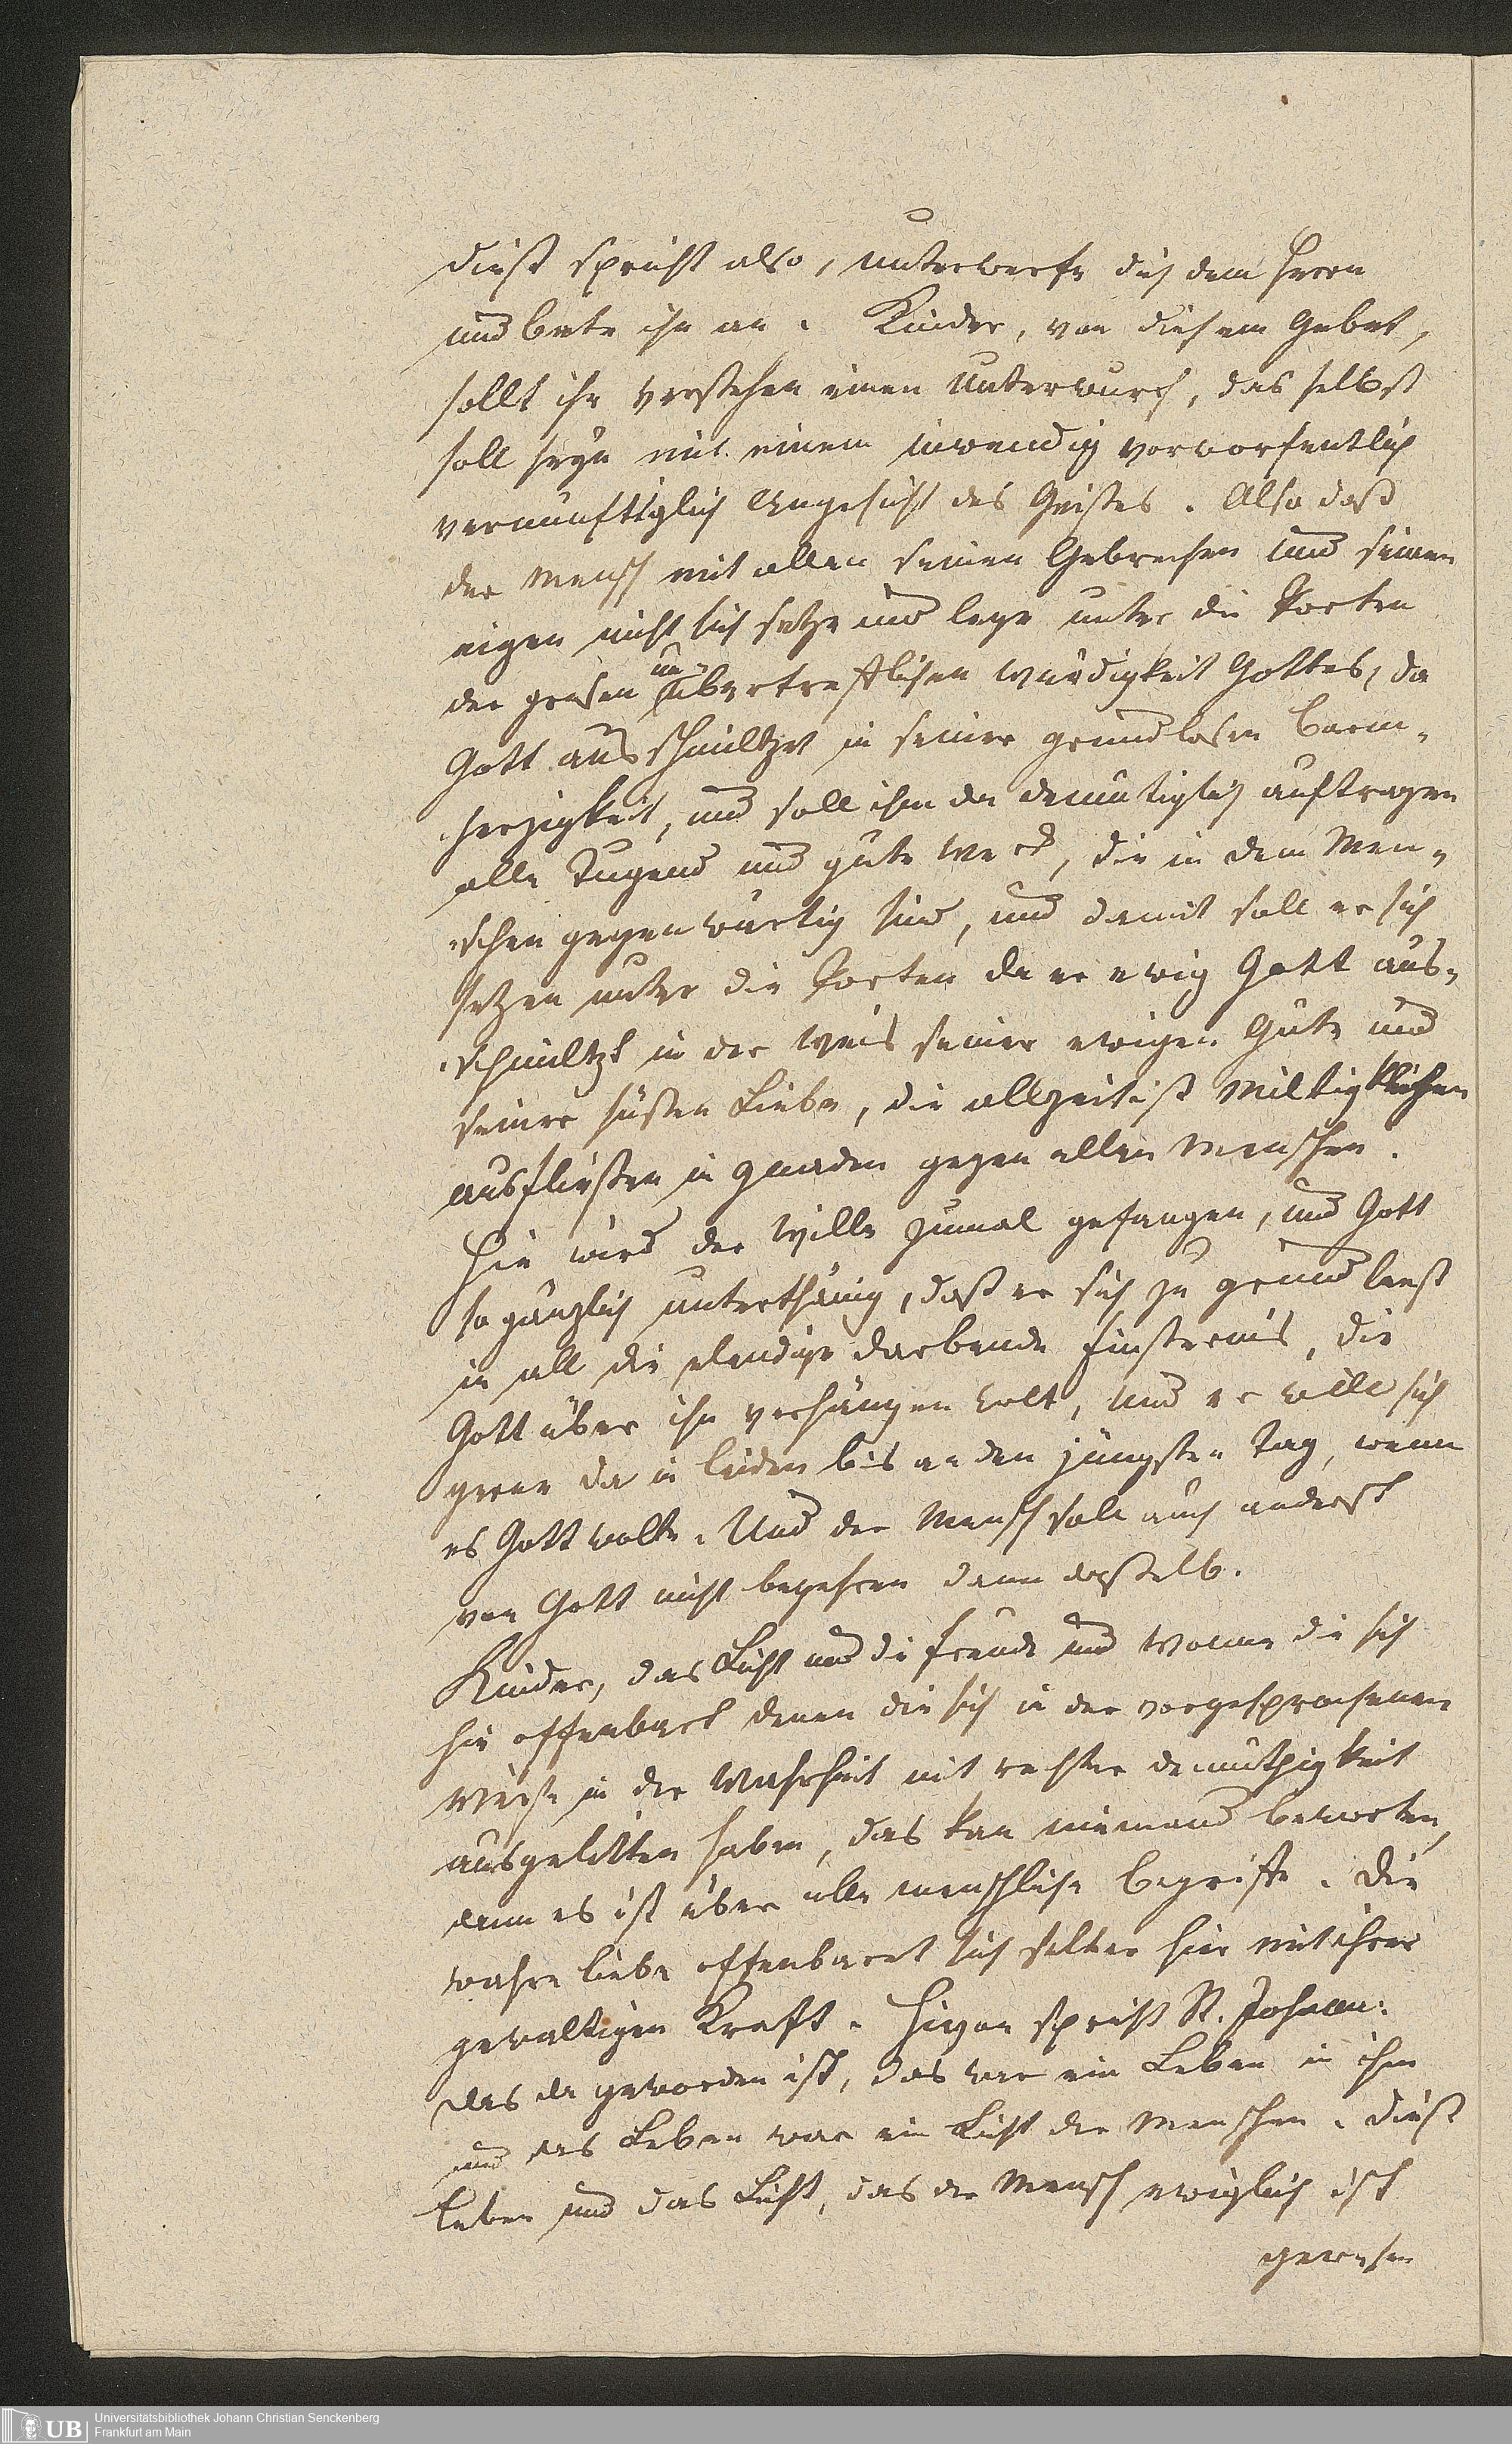 dieß spricht also, unterwerfe dich dem Herrn
und bete ihn an. Kinder, von diesem Gebet,
sollt ihr verstehen einen Unterwurf, das selbst
soll seyn mit einem inwendig verworfentlich
vernünftiglich Angesicht des Geistes. Also daß
der Mensch mit allen seinen Gebrechen und seinem
eigen nicht sich setze und lege unter die Porten
der großen un-
übertrefflichen würdigkeit Gottes, da
Gott ausschmiltzet in seiner grundlosen barm-
herzigkeit, und soll ihm da demütiglich auftragen
alle Tugend und gute werk, die in dem Men-
schen gegenwärtig sind, und damit soll er sich
setzen unter die Porten da er ewig Gott aus-
schmiltzt in der Weis seiner ewigen Güte und
seiner süßen Liebe, die allzeit ist miltigklichen
ausfließen in gnaden gegen allen Menschen.
Hie wird der Wille zumal gefangen, und Gott
so gänzlich unterthänig, daß er sich zu grund leest
in all die elendige darbende finsternis, die
Gott über ihn verhängen wolt, und er will sich
gerne da in leiden bis an den jüngsten Tag, wenn
es Gott wolte. Und der Mensch soll auch anderst
von Gott nicht begehren dann dasselb.
Kinder, das Licht und die freude und Wonne die sich
hie offenbart denen die sich in der vorgesprochenen
weise in der Wahrheit mit rechter demüthigkeit
ausgelitten haben, das kan niemand beworten,
denn es ist über alle menschliche begriffe. Die
wahre liebe offenbaret sich selber hier mit ihrer
gewaltigen Kraft. Hievon spricht St. Johann:
das da geworden ist, das war ein Leben in ihm
und das Leben war ein Licht der Menschen. Dieß
leben und das Licht, das der Mensch ewiglich ist
gewesen
Universitätsbibliothek Johann Christian Senckenberg
Frankfurt am Main
UB